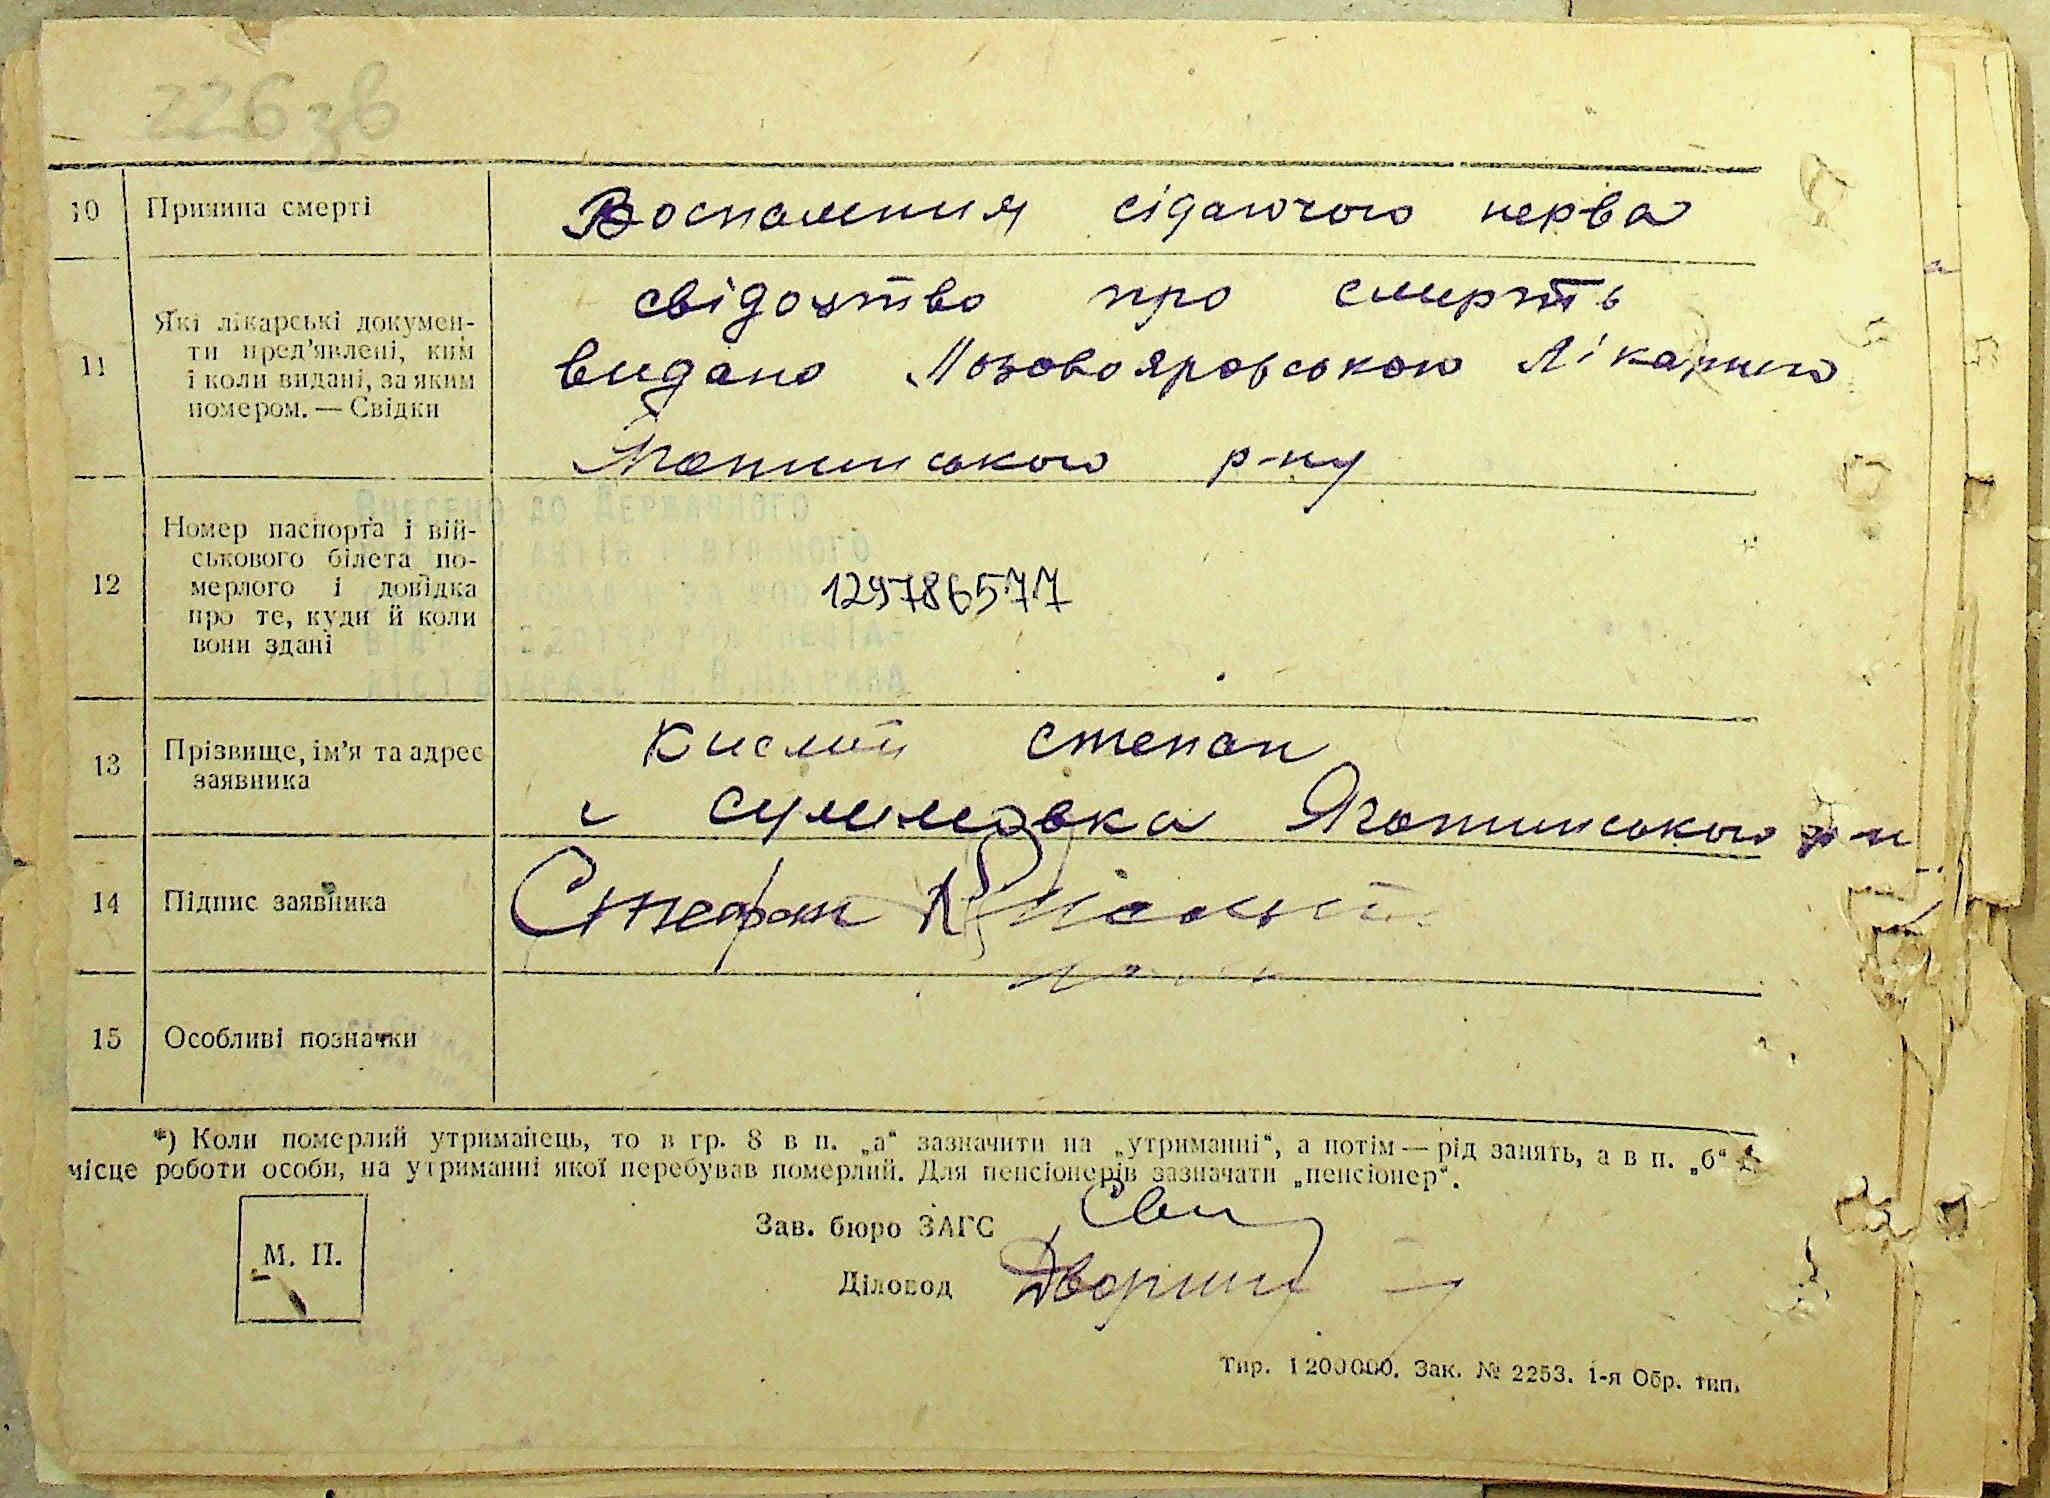 226 зв
10 Причина смерті Воспаления сідаючого нерва
11 Які лікарські докумен-
ти пред'явлені, ким
і коли видані, за яким
номером. — Свідки
свідоцтво про смерть
видано Лозовояровською Лікарнею
Яготинського р-ну
12 Номер паспорта і вій-
ськового білета по-
мерлого і довідка
про те, куди й коли
вони здані
129786577
13 Прізвище, ім'я та адрес
заявника
Кислий степан
с сулимовка Яготинського р-н
14 Підпис заявника Стефан Кислый
15 Особливі позначки
*) Коли померлий утриманець, то в гр. 8 в п. „а“ зазначити на „утриманні“, а потім — рід занять, а в п. „б“
місце роботи особи, на утриманні якої перебував померлий. Для пенсіонерів зазначати „пенсіонер“.
М. П.
Зав. бюро ЗАГС
Діловод
Тир. 1 200 000. Зак. № 2253. 1-я Обр. тип.